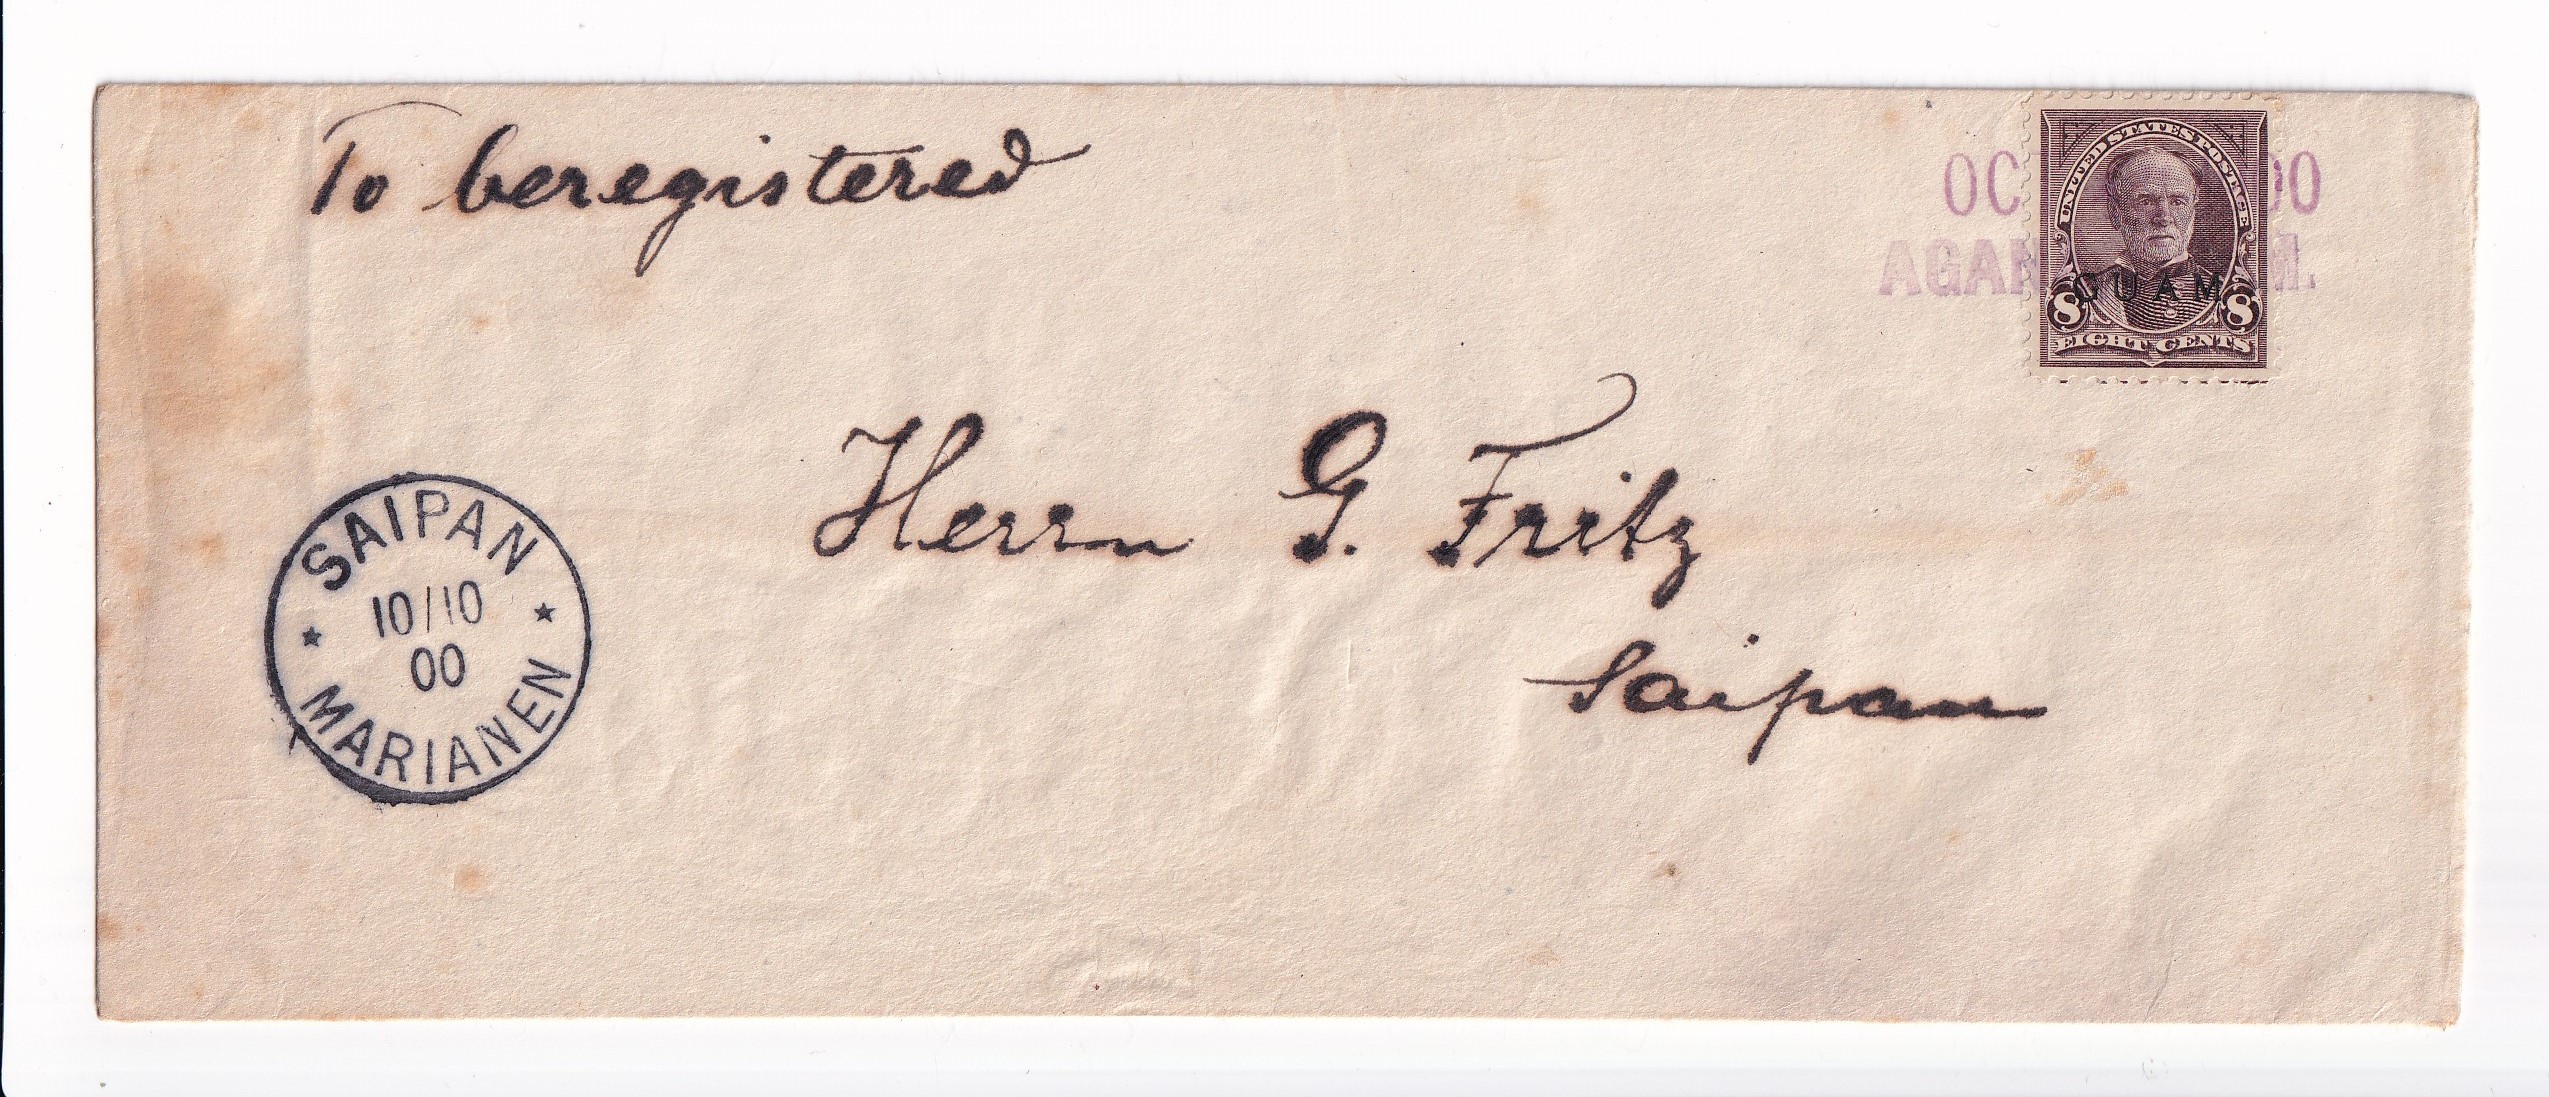 To beregistered
OC 00
AGAN M.
UNITED STATES POSTAGE
GUAM
8 8
EIGHT CENTS
Herrn G. Fritz
Saipan
SAIPAN
10/10
00
MARIANEN